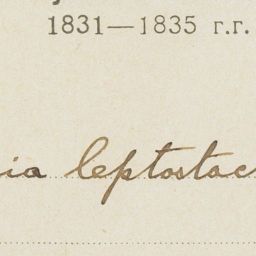 1831—1835 г.г.
ia leptostac